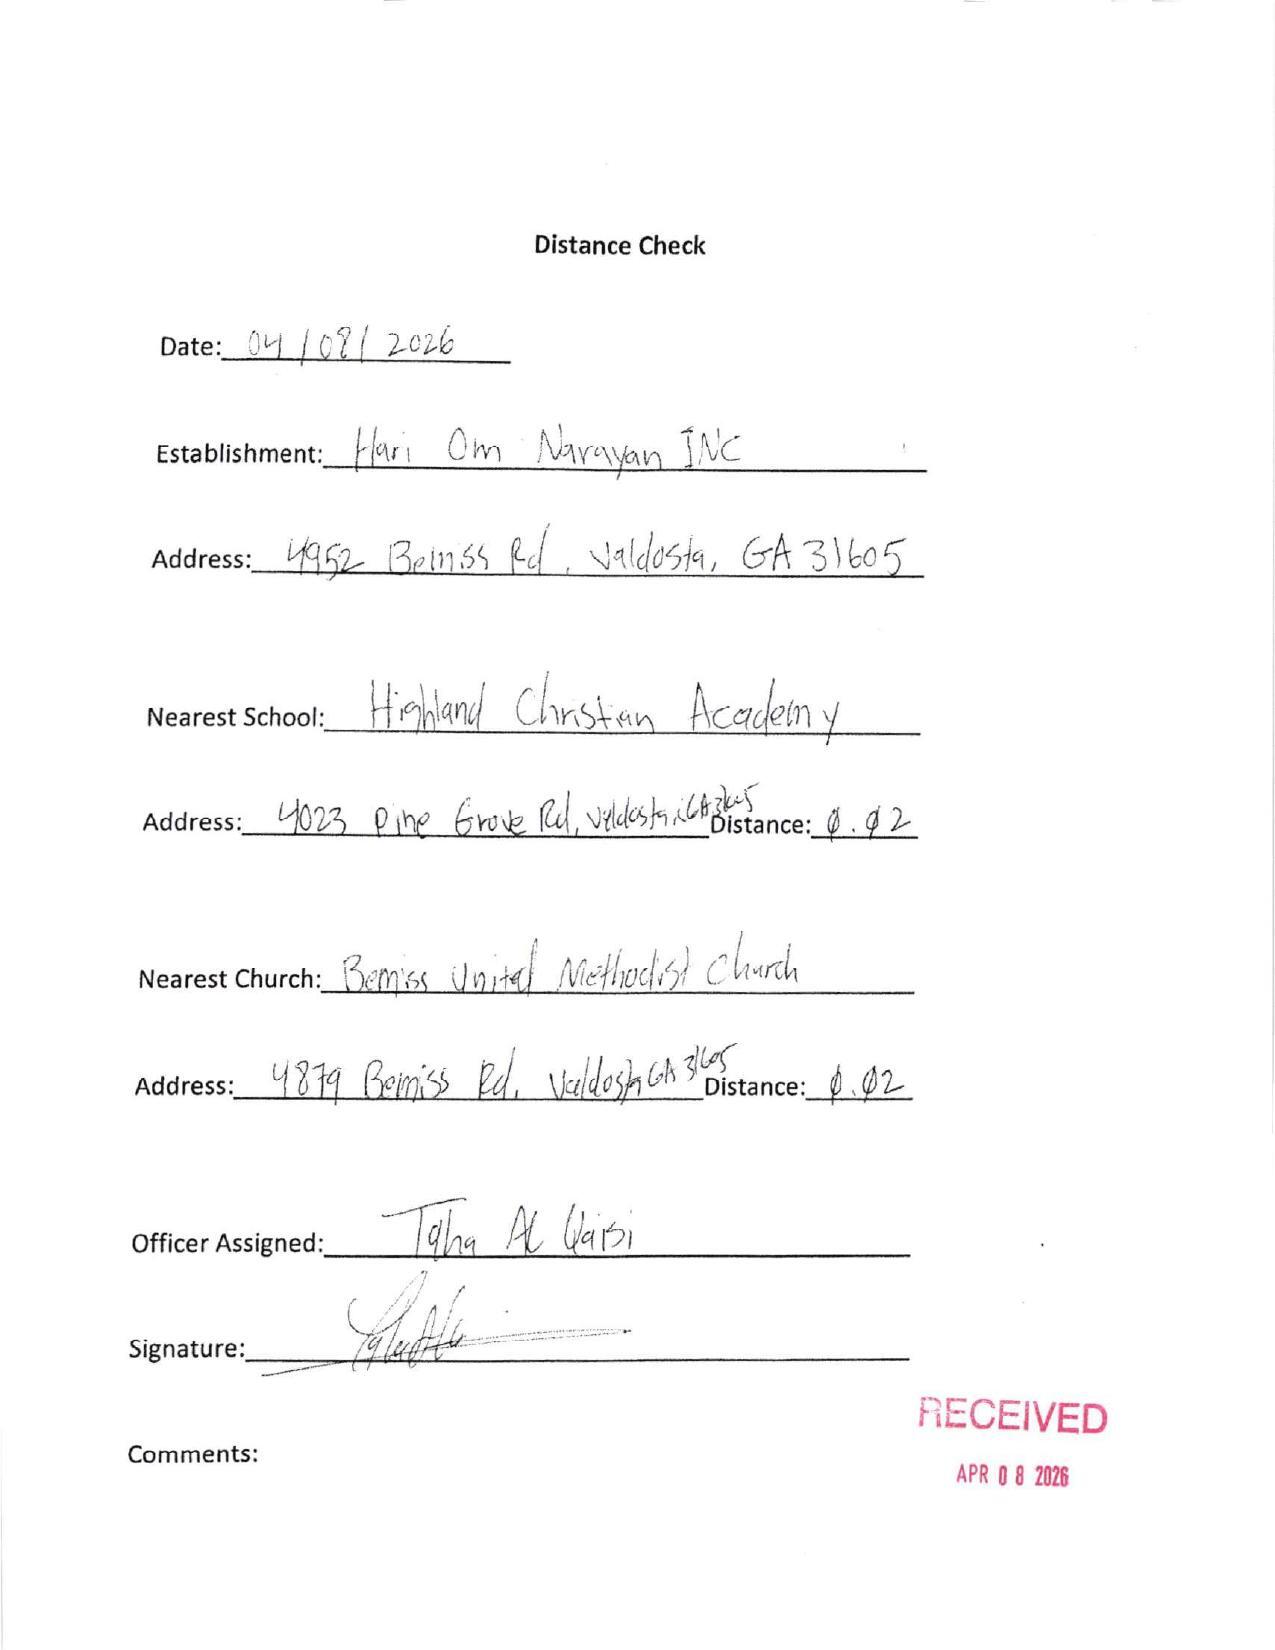 Distance Check
Date: 04/08/2026
Establishment: Hari Om Narayan INC
Address: 4952 Bemiss Rd, Valdosta, GA 31605
Nearest School: Highland Christian Academy
Address: 4023 Pine Grove Rd, Valdosta, GA 31605 Distance: 0.02
Nearest Church: Bemiss United Methodist Church
Address: 4879 Bemiss Rd, Valdosta GA 31605 Distance: 0.02
Officer Assigned: Taha Al Qaisi
Signature:
RECEIVED
Comments:
APR 08 2026